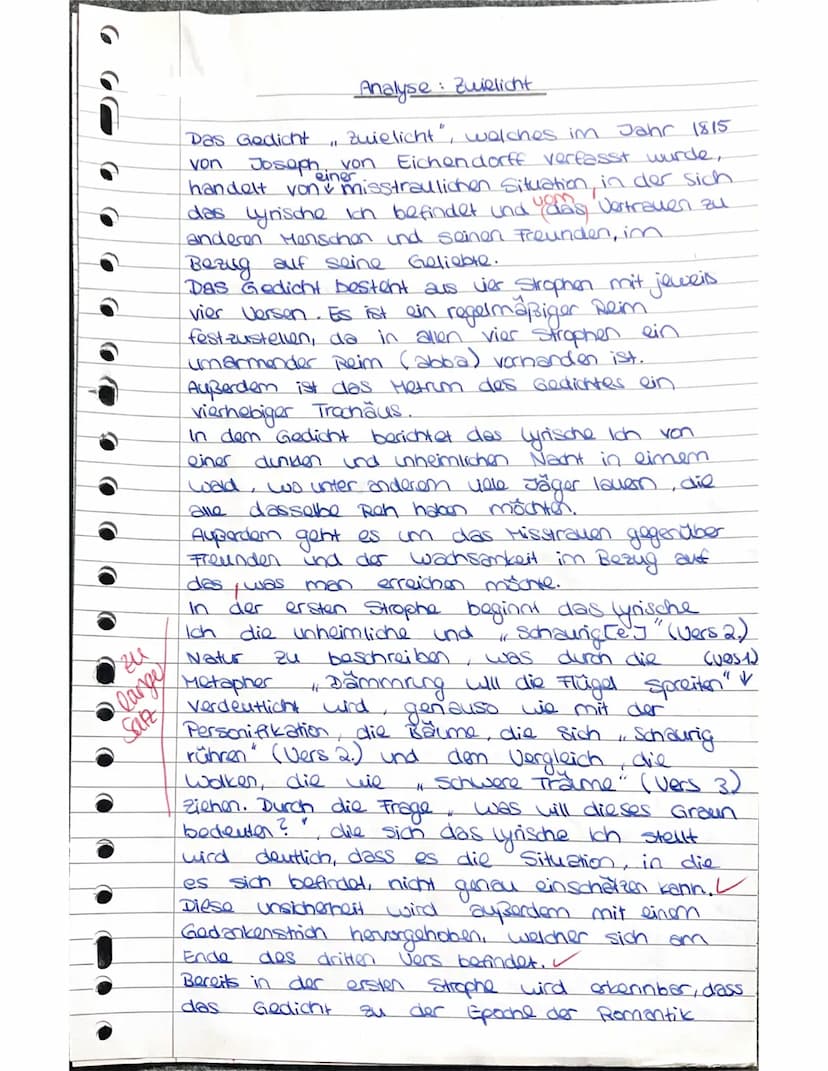 Analyse: Zwielicht
Das Gedicht „Zwielicht", welches im Jahr 1815
von Joseph von Eichendorff verfasst wurde,
einer
handelt von ↓ misstraulichen Situation, in der sich
vom
das lyrische Ich befindet und (das) Vertrauen zu
anderen Menschen und seinen Freunden, im
Bezug auf seine Geliebte.
Das Gedicht besteht aus vier Strophen mit jeweils
vier Versen. Es ist ein regelmäßiger Reim
festzustellen, da in allen vier Strophen ein
umarmender Reim (abba) vorhanden ist.
Außerdem ist das Metrum des Gedichtes ein
vierhebiger Trochäus.
In dem Gedicht berichtet das lyrische Ich von
einer dunklen und unheimlichen Nacht in einem
Wald, wo unter anderem viele Jäger lauern, die
alle dasselbe Reh haben möchten.
Außerdem geht es um das Misstrauen gegenüber
Freunden und der Wachsamkeit im Bezug auf
das, was man erreichen möchte.
In der ersten Strophe beginnt das lyrische
Ich die unheimliche und „schaurig[e]" (Vers 2.)
Natur zu beschreiben, was durch die (Vers 1)
Metapher „Dämmrung will die Flügel spreiten" ↓
verdeutlicht wird, genauso wie mit der
Personifikation, die Bäume, die sich „schaurig
rühren" (Vers 2.) und dem Vergleich, die
Wolken, die wie „schwere Träume" (Vers 3)
ziehen. Durch die Frage „Was will dieses Graun
bedeuten?", die sich das lyrische Ich stellt
wird deutlich, dass es die Situation, in die
es sich befindet, nicht genau einschätzen kann. ✓
Diese Unsicherheit wird außerdem mit einem
Gedankenstrich hervorgehoben, welcher sich am
Ende des dritten Vers befindet. ✓
Bereits in der ersten Strophe wird erkennbar, dass
das Gedicht zu der Epoche der Romantik
zu
langer
Satz